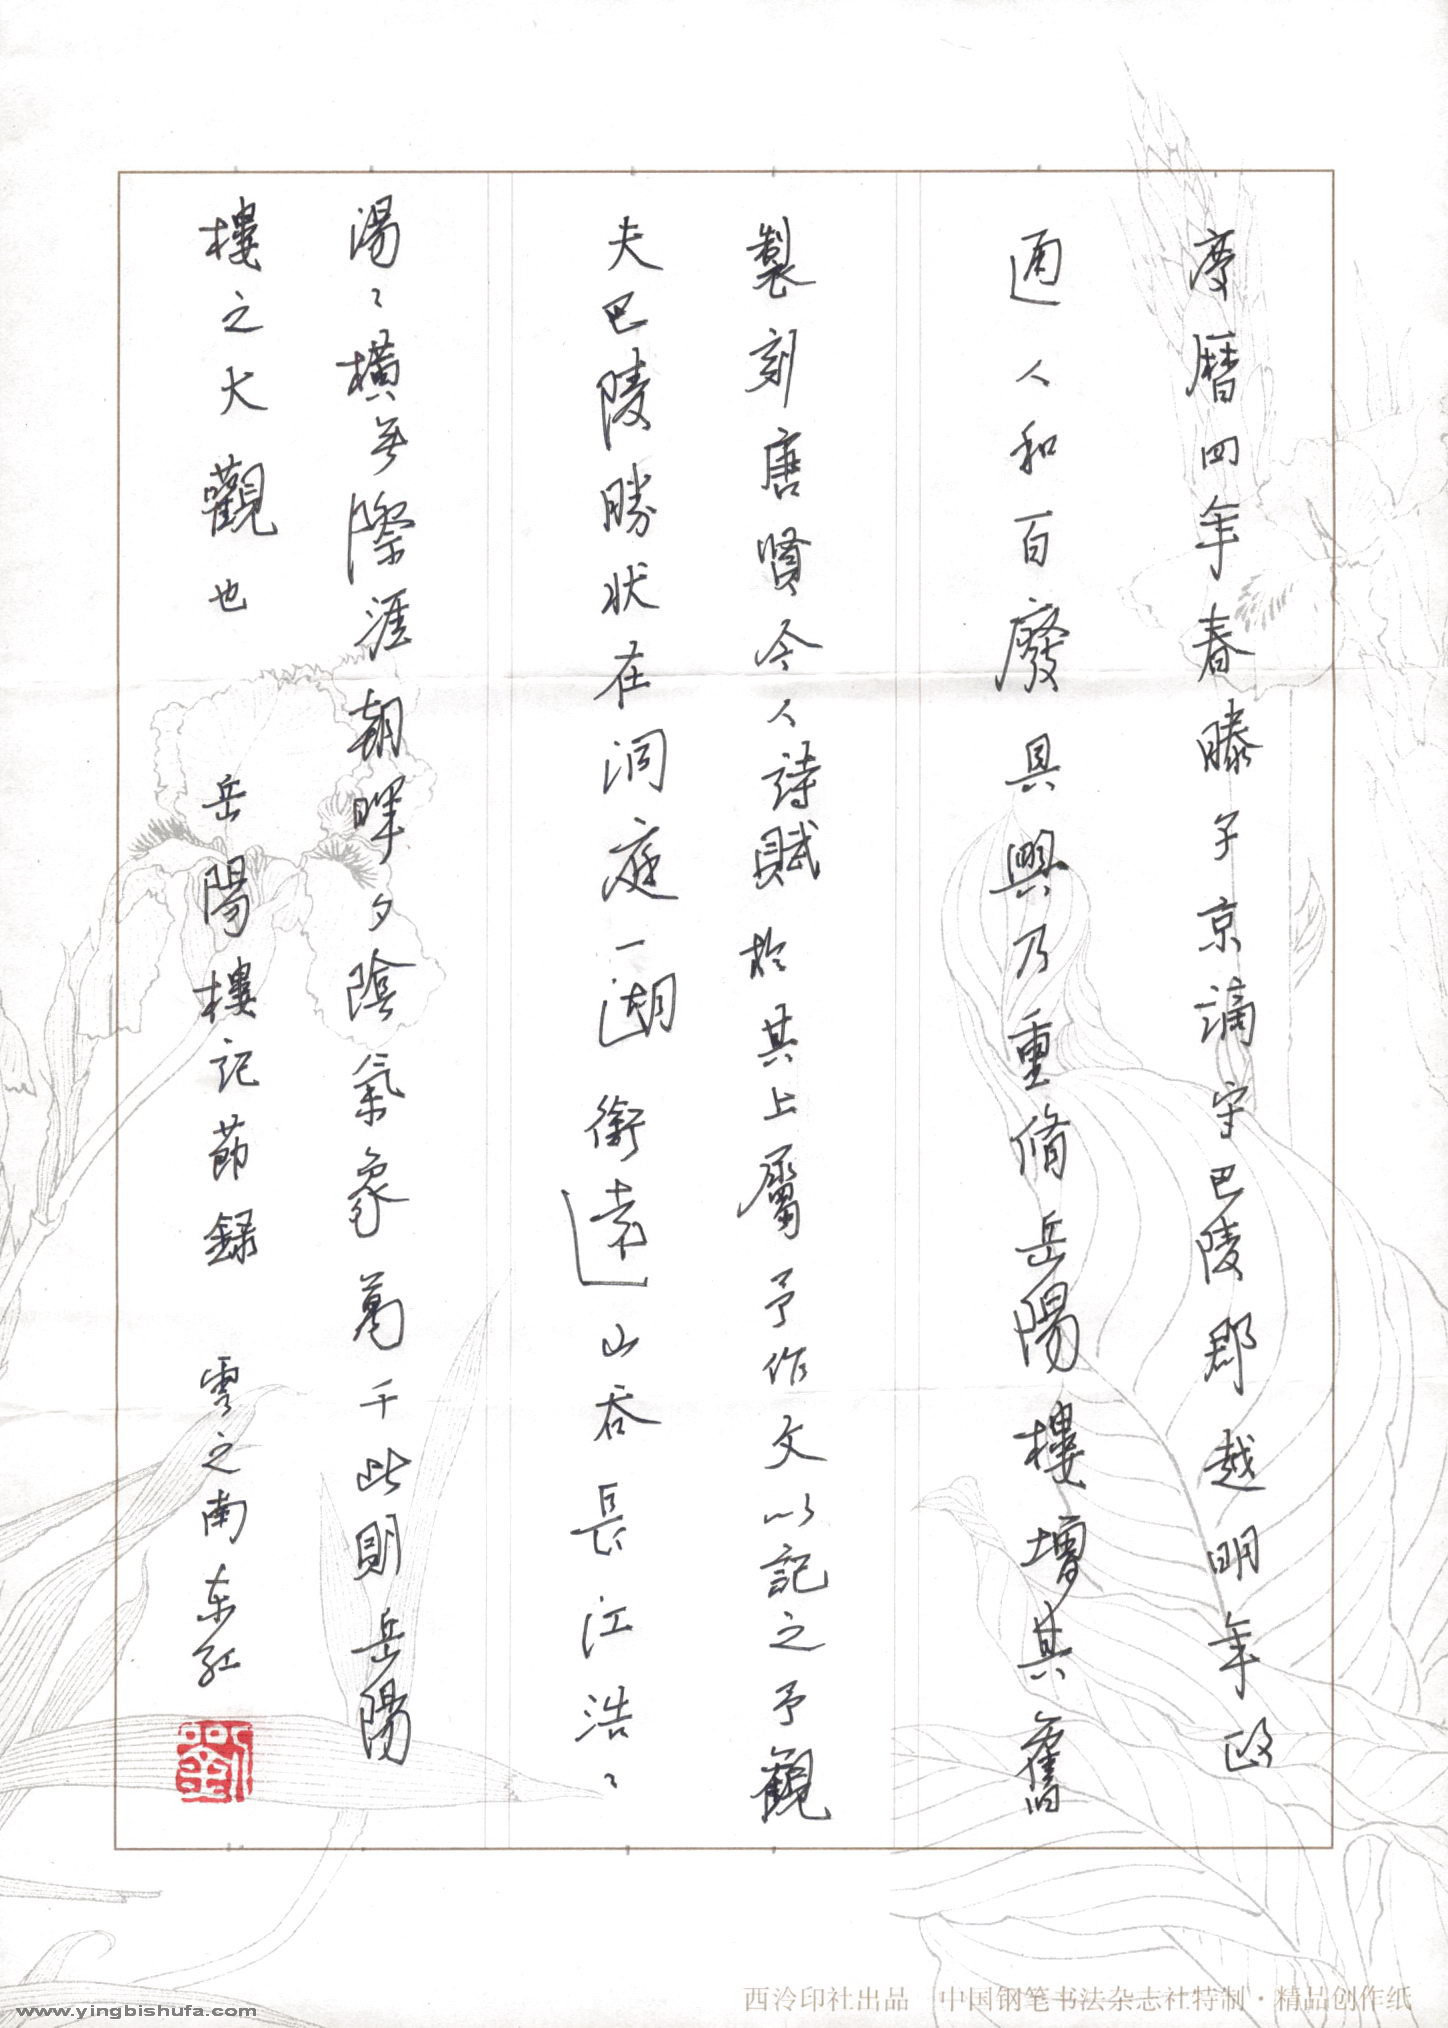 慶曆四年春滕子京謫守巴陵郡越明年政
通人和百廢具興乃重脩岳陽樓增其舊
製刻唐賢今人詩賦於其上屬予作文以記之予觀
夫巴陵勝狀在洞庭一湖銜遠山吞長江浩〻
湯〻橫無際涯朝暉夕陰氣象萬千此則岳陽
樓之大觀也 岳陽樓記節録 雲之南东红
劉
www.yingbishufa.com
西泠印社出品 中国钢笔书法杂志社特制·精品创作纸